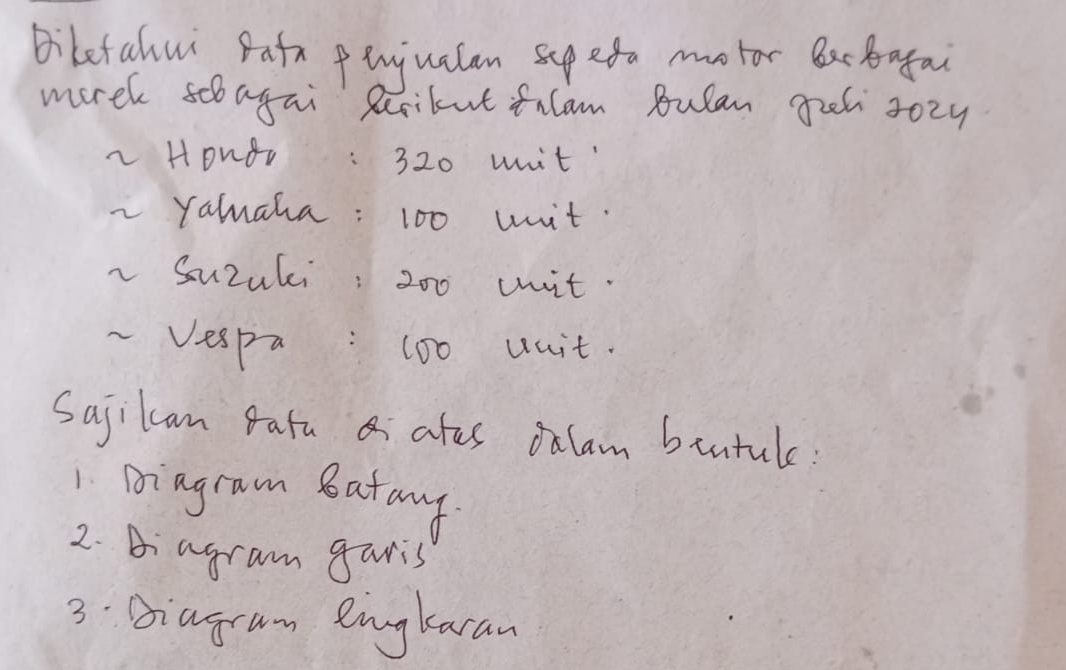 Diketahui data penjualan sepeda motor berbagai
merek sebagai berikut dalam bulan Juli 2024
~ Honda : 320 unit
~ Yamaha : 100 unit.
~ Suzuki : 200 unit.
~ Vespa : 100 unit.
Sajikan data di atas dalam bentuk:
1. Diagram batang.
2. Diagram garis
3. Diagram lingkaran